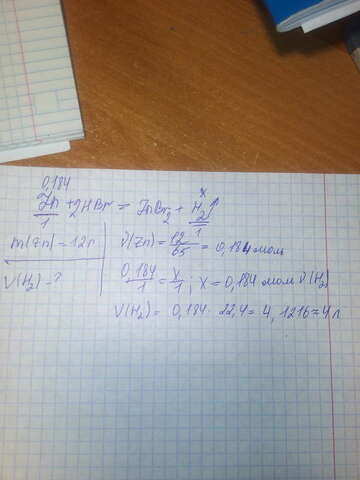 0,184 x
Zn + 2HBr = ZnBr2 + H2↑
1 1
m(Zn) = 12г
V(H2) - ?
ν(Zn) = 12/65 = 0,184 моль
0,184/1 = x/1 ; x = 0,184 моль ν(H2)
V(H2) = 0,184 · 22,4 = 4,1216 ≈ 4 л